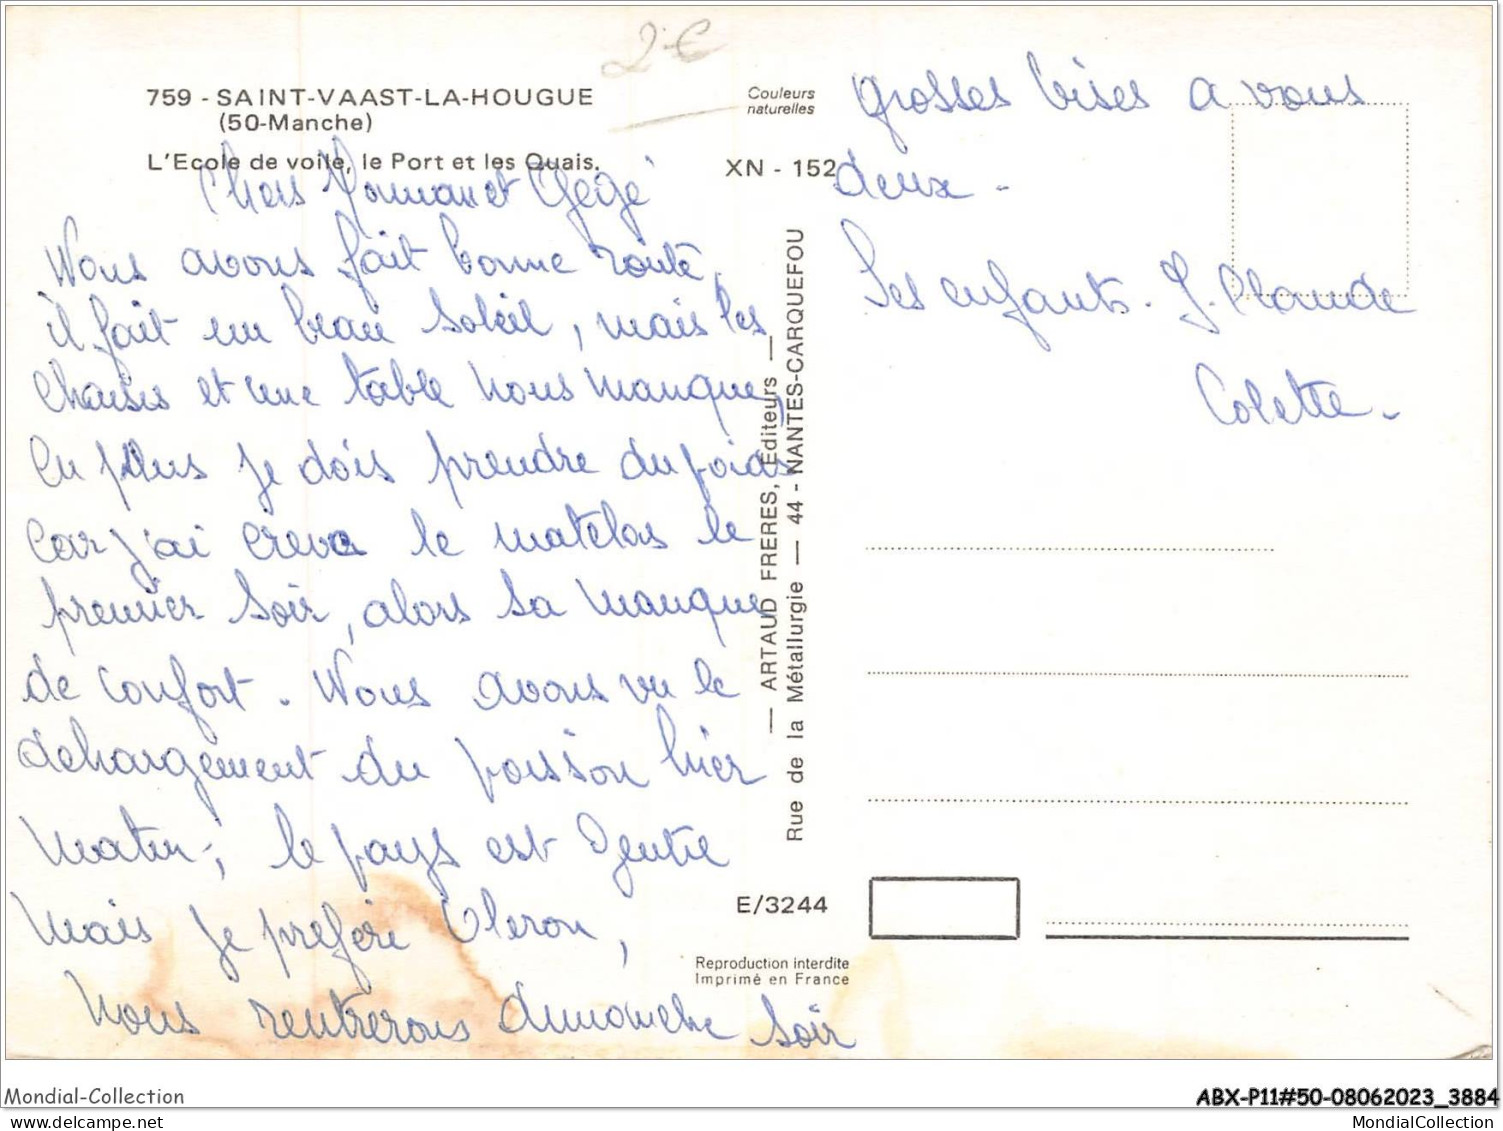 2 €
759 - SAINT-VAAST-LA-HOUGUE
(50-Manche)
L'Ecole de voile, le Port et les Quais.
Couleurs
naturelles
XN - 152
Chers Maman et Gégé
Nous avons fait bonne route,
il fait un beau soleil, mais les
chaises et une table nous manque,
en plus je dois prendre du poids
car j'ai creva le matelas le
premier soir, alors sa manque
de confort. Nous avons vu le
dehargement du poisson hier
matin, le pays est gentie
mais je préfère Oleron,
nous rentrerons dimanche soir
grosses bises a vous
deux.
Les enfants. J. Claude
Colette.
— ARTAUD FRERES, Editeurs —
Rue de la Métallurgie — 44 - NANTES-CARQUEFOU
E/3244
Reproduction interdite
Imprimé en France
Mondial-Collection
ABX-P11#50-08062023_3884
mondial-collection
MondialCollection